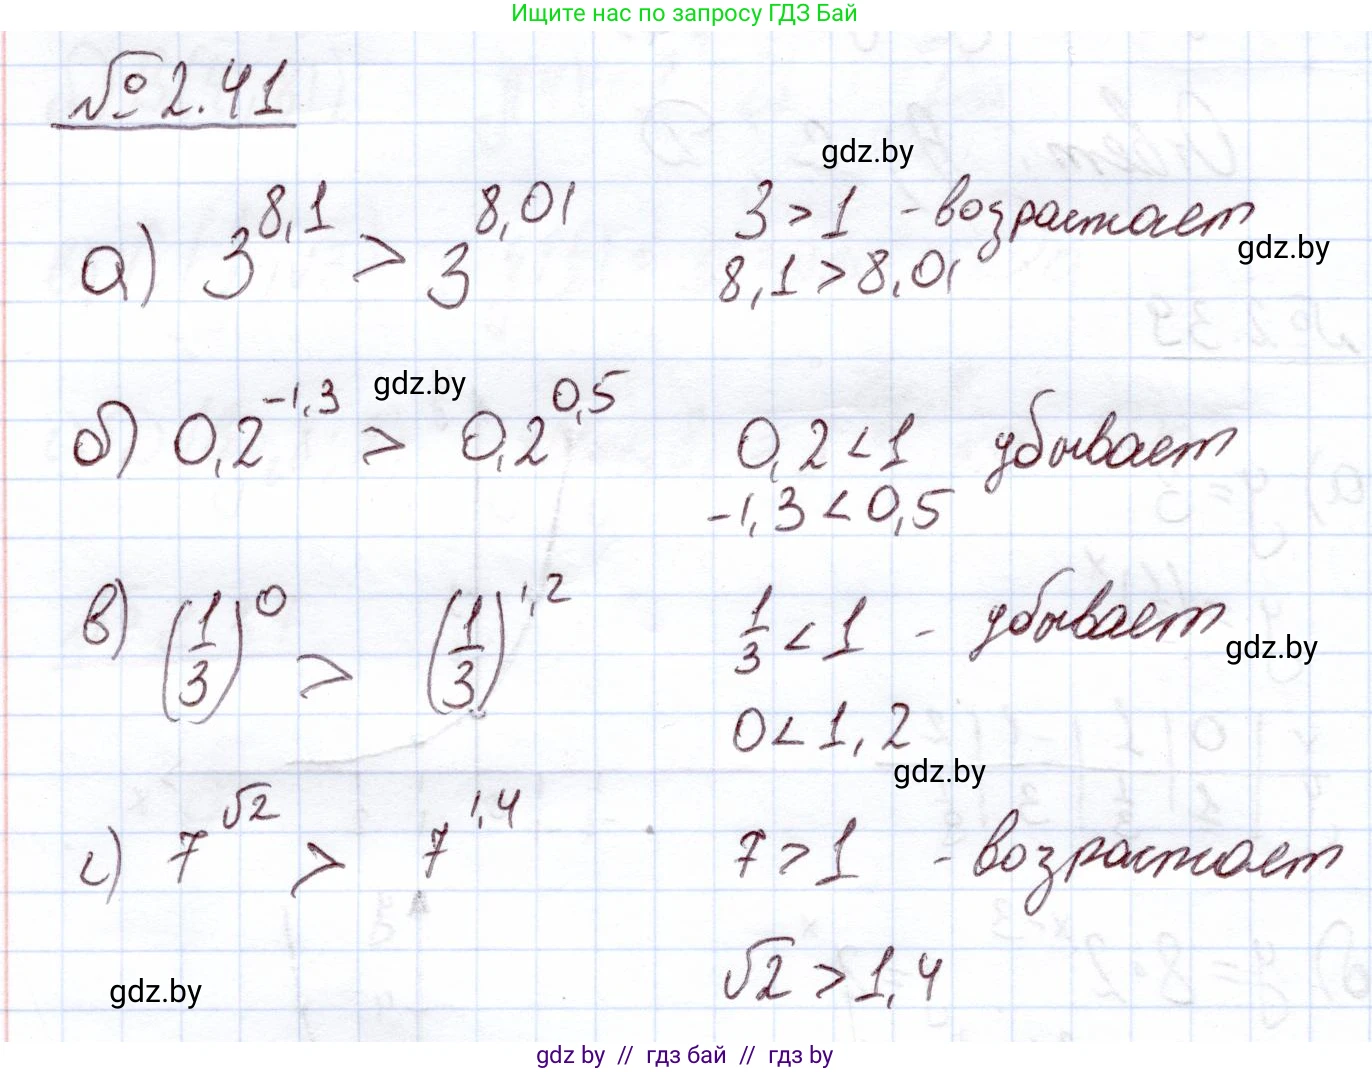 Ищите нас по запросу ГДЗ Бай
№ 2.41
gdz.by
а) 3^8,1 > 3^8,01 3 > 1 - возрастает
gdz.by
8,1 > 8,01
gdz.by
б) 0,2^-1,3 > 0,2^0,5 0,2 < 1 убывает
-1,3 < 0,5
в) (1/3)^0 > (1/3)^1,2 1/3 < 1 - убывает
gdz.by
0 < 1,2
gdz.by
г) 7^√2 > 7^1,4 7 > 1 - возрастает
√2 > 1,4
gdz.by
gdz by // гдз бай // gdz by